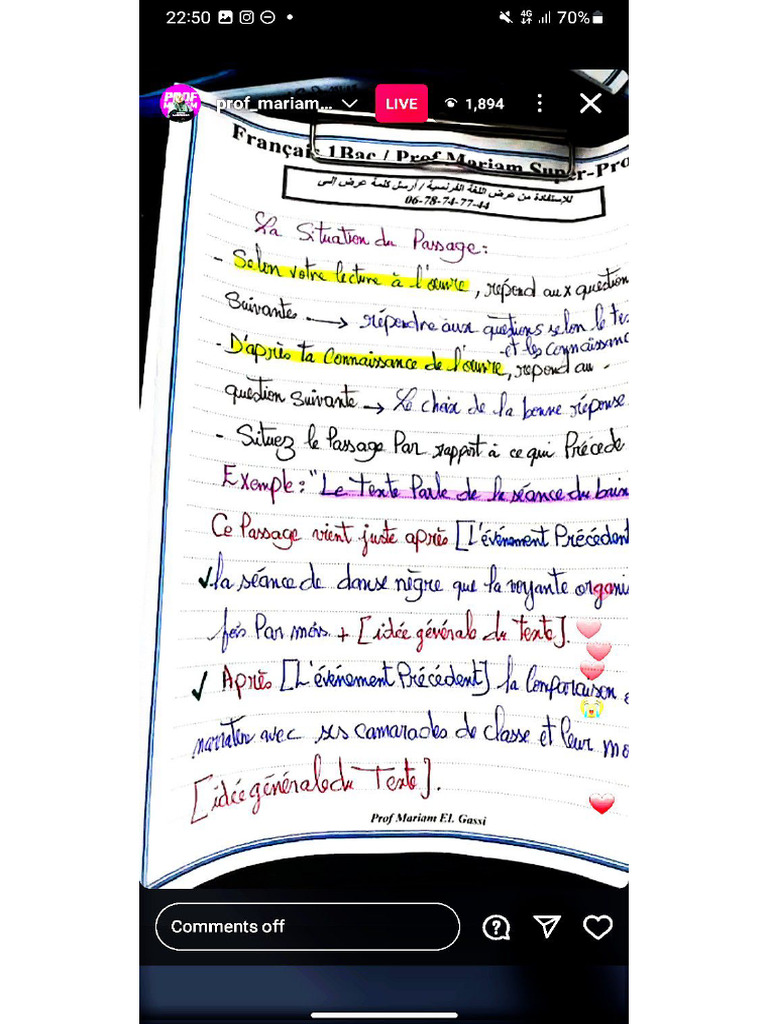 22:50
4G
70%
PROF
MARIAM
prof_mariam...
LIVE
1,894
Français 1Bac / Prof Mariam Super-Pro
للإستفادة من عرض اللغة الفرنسية / أرسل كلمة عرض الى
06-78-74-77-44
La Situation du Passage:
- Selon votre lecture à l'œuvre, répend aux question
Suivantes → répendre aux questions selon le te
et les connaissanc
- D'après ta connaissance de l'œuvre, repend au -
question suivante → Le choix de la bonne réponse
- Situez le Passage Par rapport à ce qui Précède
Exemple: "Le Texte Parle de la séance du bain
Ce Passage vient juste après [L'événement Précédent
✓ la séance de danse nègre que la voyante organi
fois Par mois + [idée générale du Texte].
✓ Après [L'événement Précédent] la Comparaison
narrateur avec ses camarades de classe et leur mo
[idée générale du Texte].
Prof Mariam El. Gassi
Comments off